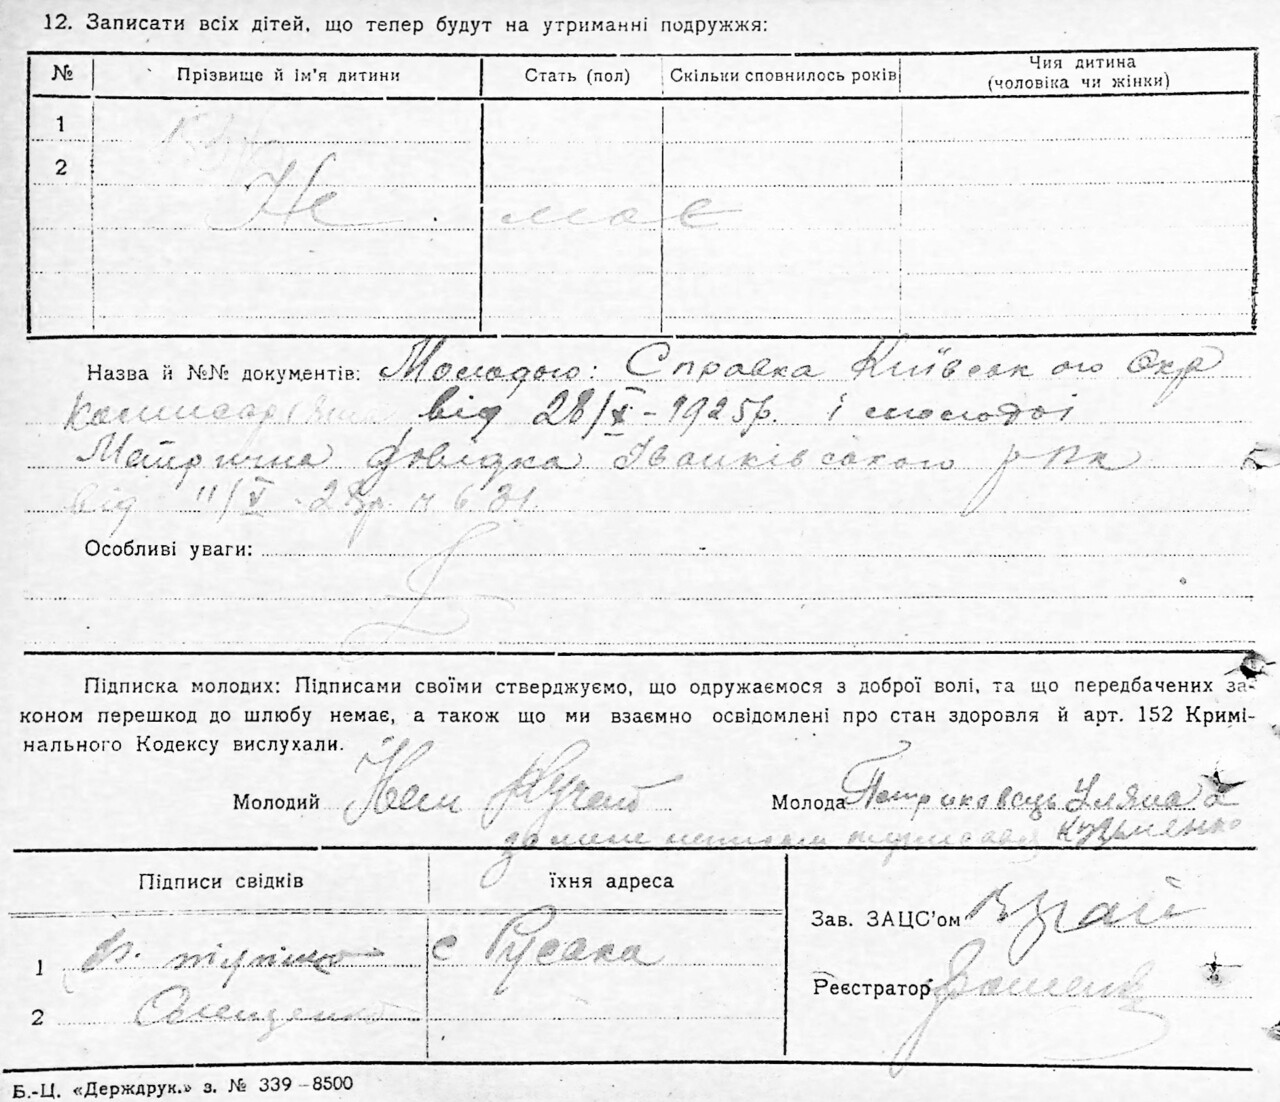 12. Записати всіх дітей, що тепер будут на утриманні подружжя:
№ Прізвище й ім'я дитини Стать (пол) Скільки сповнилось років Чия дитина (чоловіка чи жінки)
1
2
Не має
Назва й №№ документів: Молодого: Справка Київського Окр
від 28/X – 1925р. і молодої
Метрична довідка Іванківського рвк
від 11/V - 28р. N 621
Особливі уваги:
Підписка молодих: Підписами своїми стверджуємо, що одружаємося з доброї волі, та що передбачених за-
коном перешкод до шлюбу немає, а також що ми взаємно освідомлені про стан здоровля й арт. 152 Кримі-
нального Кодексу вислухали.
Молодий Молода Уляна
Кузьменко
Підписи свідків їхня адреса
Зав. ЗАЦС'ом
1 с Русака
Реєстратор
2
Б.-Ц. «Держдрук.» з. № 339–8500